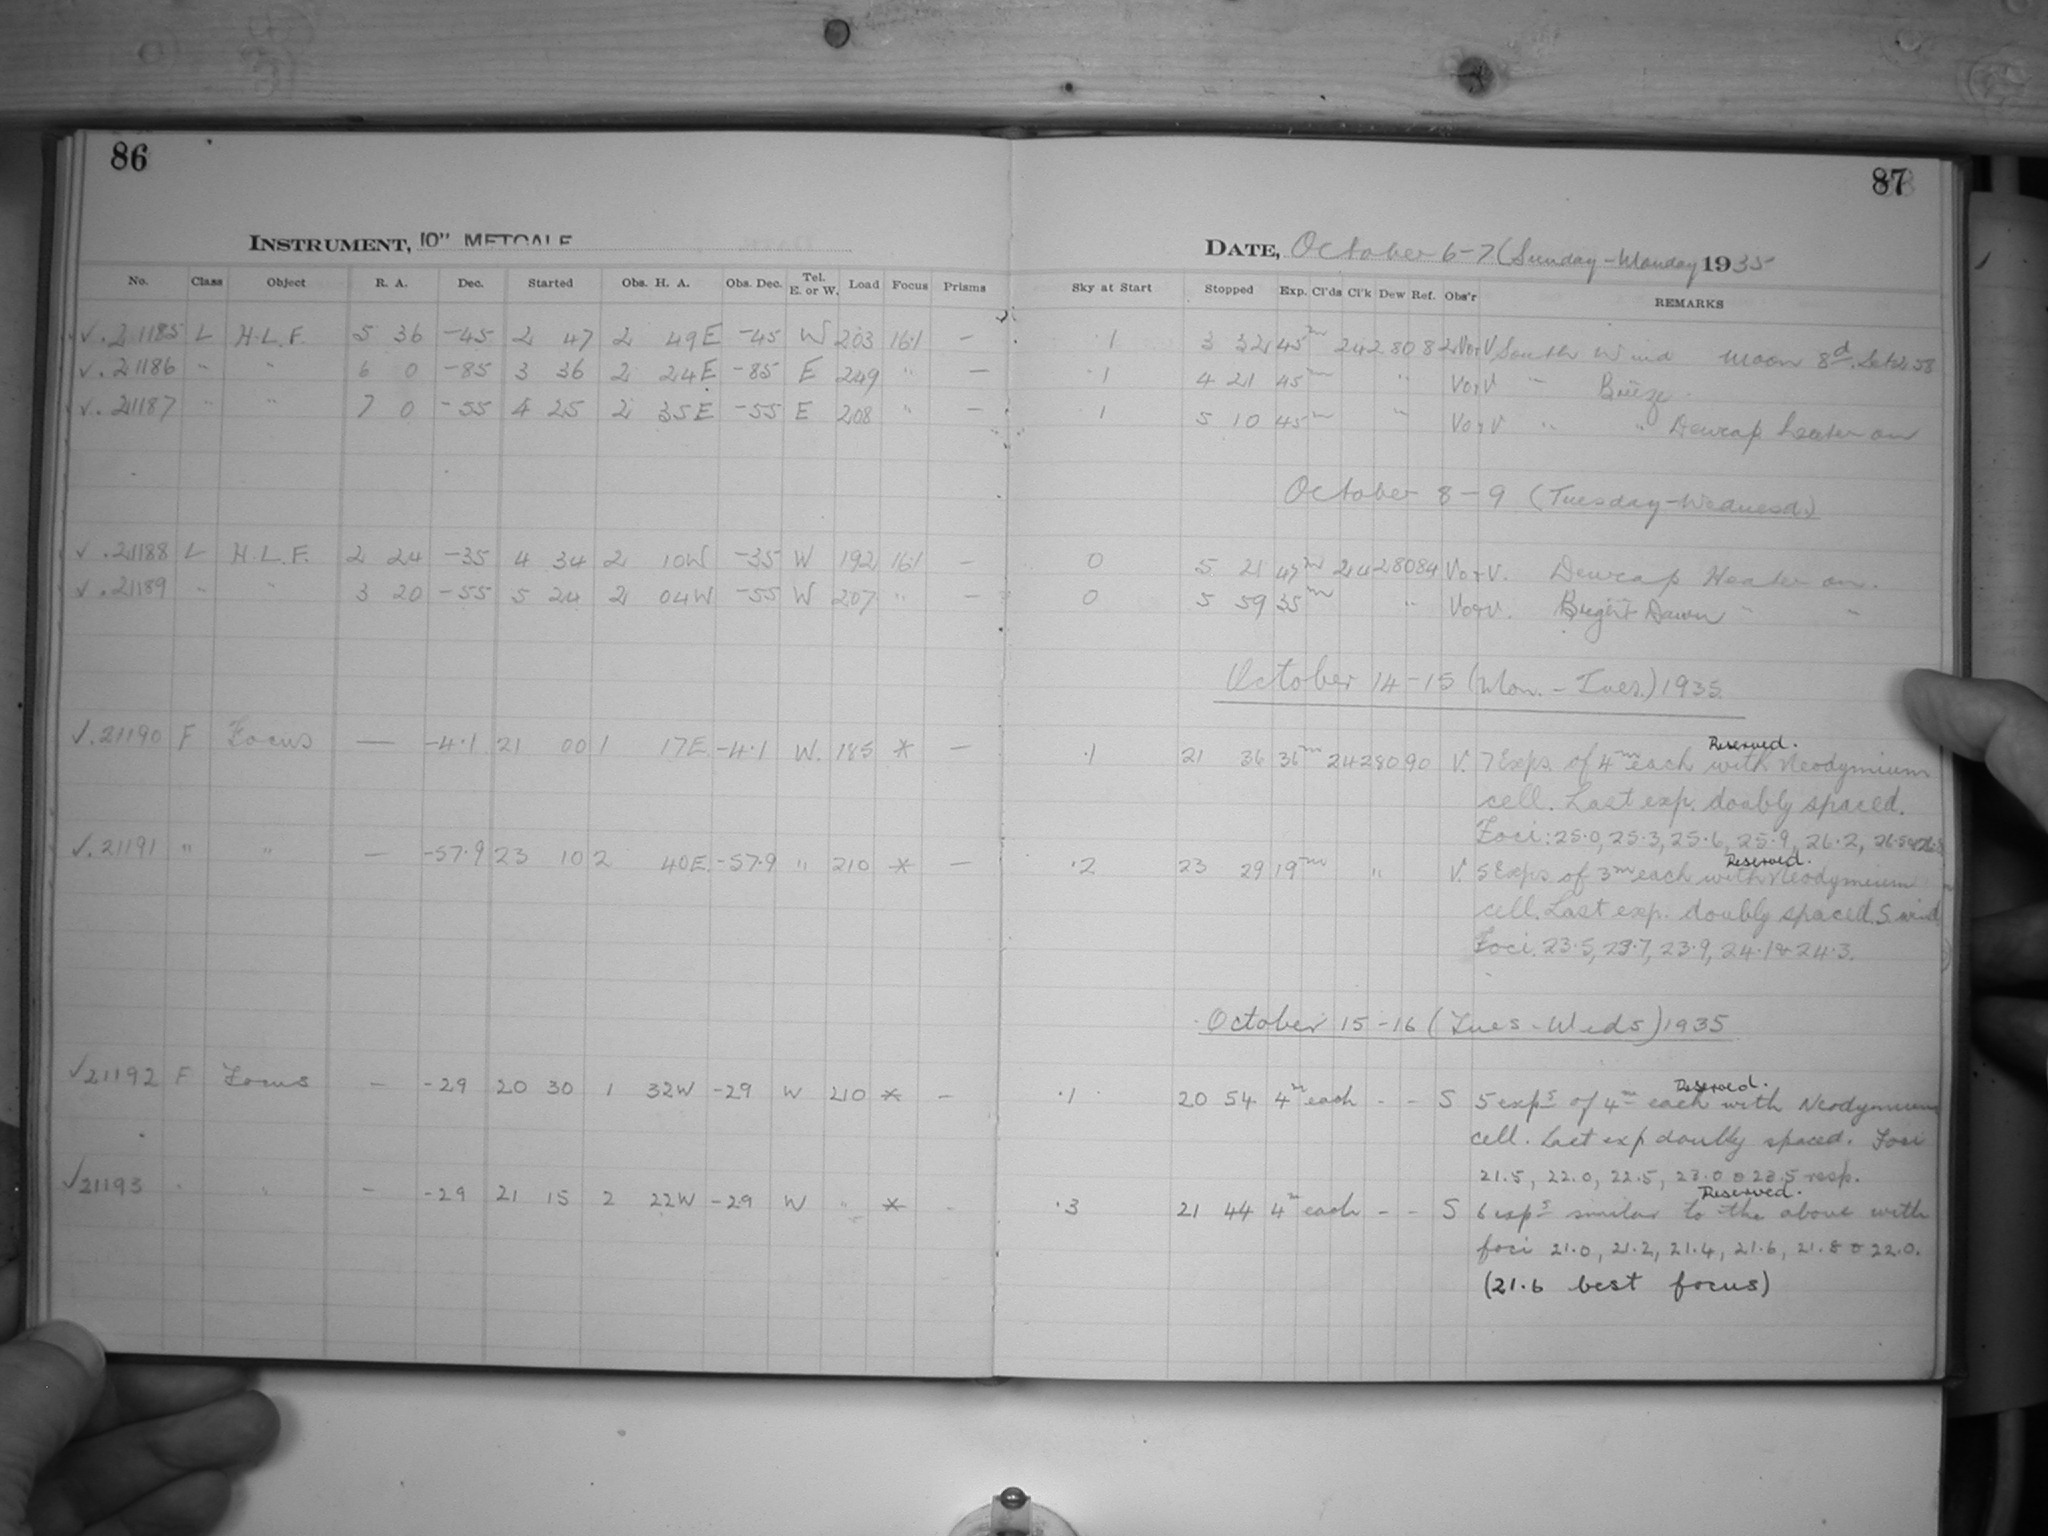 86
87
INSTRUMENT, 10" METCALF
DATE, October 6-7 (Sunday-Monday 1935
No. Class Object R. A. Dec. Started Obs. H. A. Obs. Dec. Tel. E. or W. Load Focus Prisms Sky at Start Stopped Exp. Cl'ds Cl'k Dew Ref. Obs'r REMARKS
√. 21185 L H.L.F. 5 36 -45 2 47 2 49E -45 W 203 16.1 — 1 3 32 45m 24 2 80 82 V South Wind Moon 8d.
√. 21186 " " 6 0 -85 3 36 2 24E -85 E 249 " — 1 4 21 45m " V " Breeze
√. 21187 " " 7 0 -55 4 25 2 35E -55 E 208 " — 1 5 10 45m " V " " Dewcap heater on
October 8-9 (Tuesday-Wednesd.)
√. 21188 L H.L.F. 2 24 -35 4 34 2 10W -35 W 192 16.1 — 0 5 21 47m 24 2 80 84 V. Dewcap Heater on.
√. 21189 " " 3 20 -55 5 24 2 04W -55 W 207 " — 0 5 59 35m " V. Bright Dawn " "
October 14-15 (Mon. - Tues.) 1935.
√. 21190 F Focus — -4.1 21 00 1 17E -4.1 W. 185 * — .1 21 36 36m 24 2 80 90 V. 7 Exps. of 4m each with Neodymium
Reserved.
cell. Last exp. doubly spaced.
Foci: 25.0, 25.3, 25.6, 25.9, 26.2, 26.5
√. 21191 " " — -57.9 23 10 2 40E -57.9 " 210 * — .2 23 29 19m " V. 5 Exps of 3m each with Neodymium
Reserved.
cell. Last exp. doubly spaced. S. wind
Foci. 23.5, 23.7, 23.9, 24.1 & 24.3.
October 15-16 (Tues-Weds) 1935
√21192 F Focus - -29 20 30 1 32W -29 W 210 * - .1 20 54 4m each - - S 5 exps of 4m each with Neodymium
Reserved.
cell. Last exp doubly spaced. Foci
21.5, 22.0, 22.5, 23.0 & 23.5 resp.
√21193 " " - -29 21 15 2 22W -29 W " * - .3 21 44 4m each - - S 6 exps similar to the above with
Reserved.
foci 21.0, 21.2, 21.4, 21.6, 21.8 & 22.0.
(21.6 best focus)